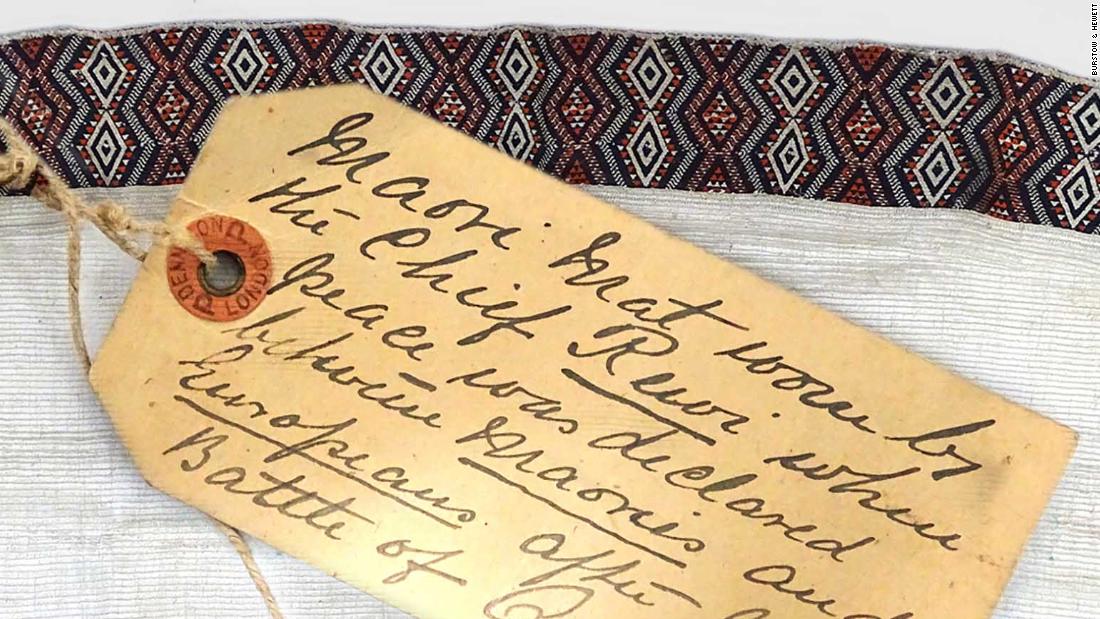 Maori Mat worn by
the Chief Rewi when
peace was declared
between Maoris and
Europeans after
Battle of
LONDON
BURSTOW & HEWETT